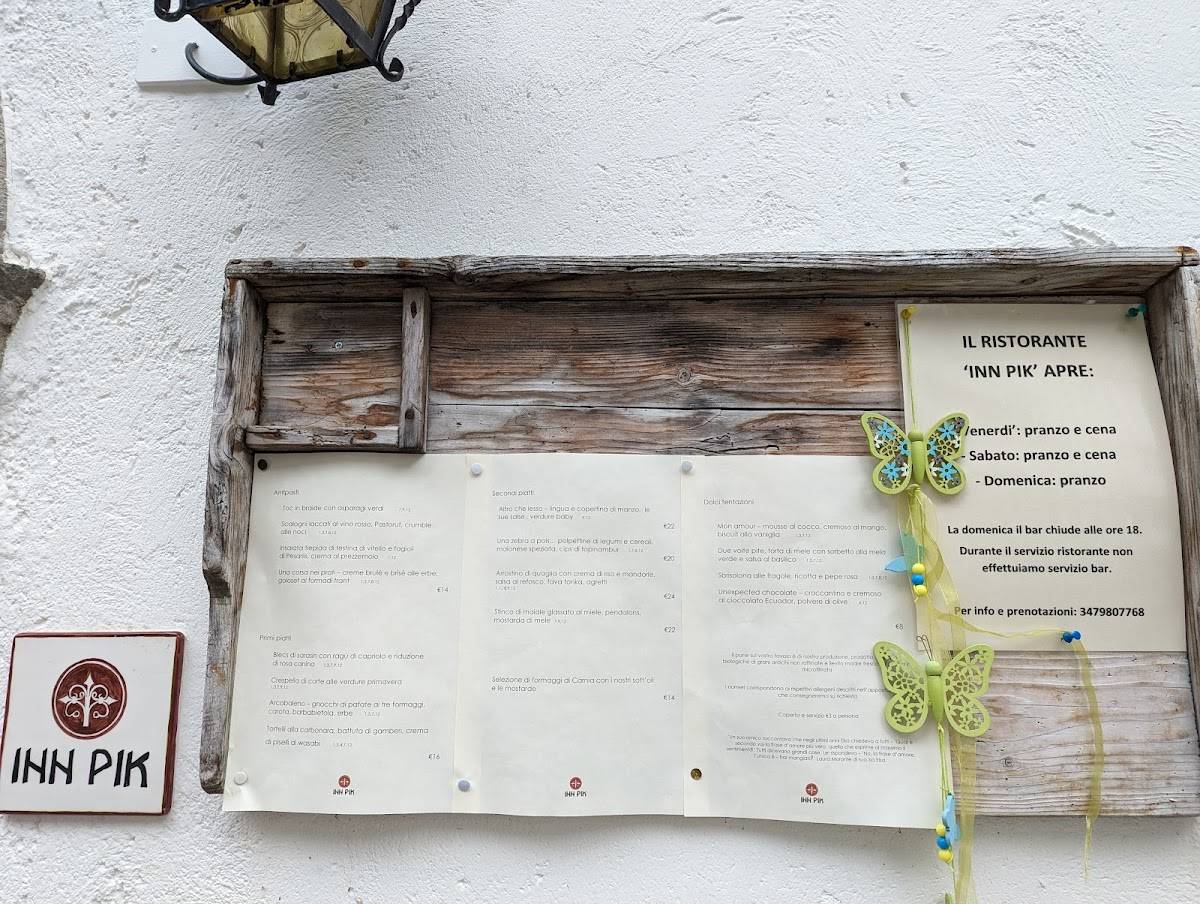 IL RISTORANTE
'INN PIK' APRE:
Venerdi': pranzo e cena
- Sabato: pranzo e cena
- Domenica: pranzo
La domenica il bar chiude alle ore 18.
Durante il servizio ristorante non
effettuiamo servizio bar.
Per info e prenotazioni: 3479807768
Antipasti
Toc in braide con asparagi verdi
Scalogni laccati al vino rosso, Pastorut, crumble
alle noci
Insalata tiepida di testina di vitello e fagioli
di Pesariis, crema al prezzemolo
Una corsa nei prati – creme brulè e brisè alle erbe,
geloset al formadi frant
€14
Primi piatti
Blecs di sarasin con ragù di capriolo e riduzione
di rosa canina
Crespella di corte alle verdure primavera
Arcobaleno – gnocchi di patate ai tre formaggi,
carota, barbabietola, erbe
Tortelli alla carbonara, battuta di gamberi, crema
di piselli al wasabi
€16
INN PIK
Secondi piatti
Altro che lesso – lingua e copertina di manzo, le
sue salse, verdure baby
€22
Una zebra a pois... polpettine di legumi e cereali,
maionese speziata, cips di topinambur
€20
Arrostino di quaglia con crema di riso e mandorle,
salsa al refosco, fava tonka, agretti
€24
Stinco di maiale glassato al miele, pendalons,
mostarda di mele
€22
Selezione di formaggi di Carnia con i nostri sott'oli
e le mostarde
€14
INN PIK
Dolci tentazioni
Mon amour – mousse al cocco, cremoso al mango,
biscuit alla vaniglia
Due volte pite, torta di mele con sorbetto alla mela
verde e salsa al basilico
Sbrisolona alle fragole, ricotta e pepe rosa
Unexpected chocolate – croccantino e cremoso
al cioccolato Ecuador, polvere di olive
€8
Il pane sul vostro tavolo è di nostra produzione, prodotto
biologiche di grani antichi non raffinate e lievito madre fresco
microfiltrata
I numeri corrispondono ai rispettivi allergeni descritti nell'
che consegneremo su richiesta
Coperto e servizio €3 a persona
INN PIK
INN PIK